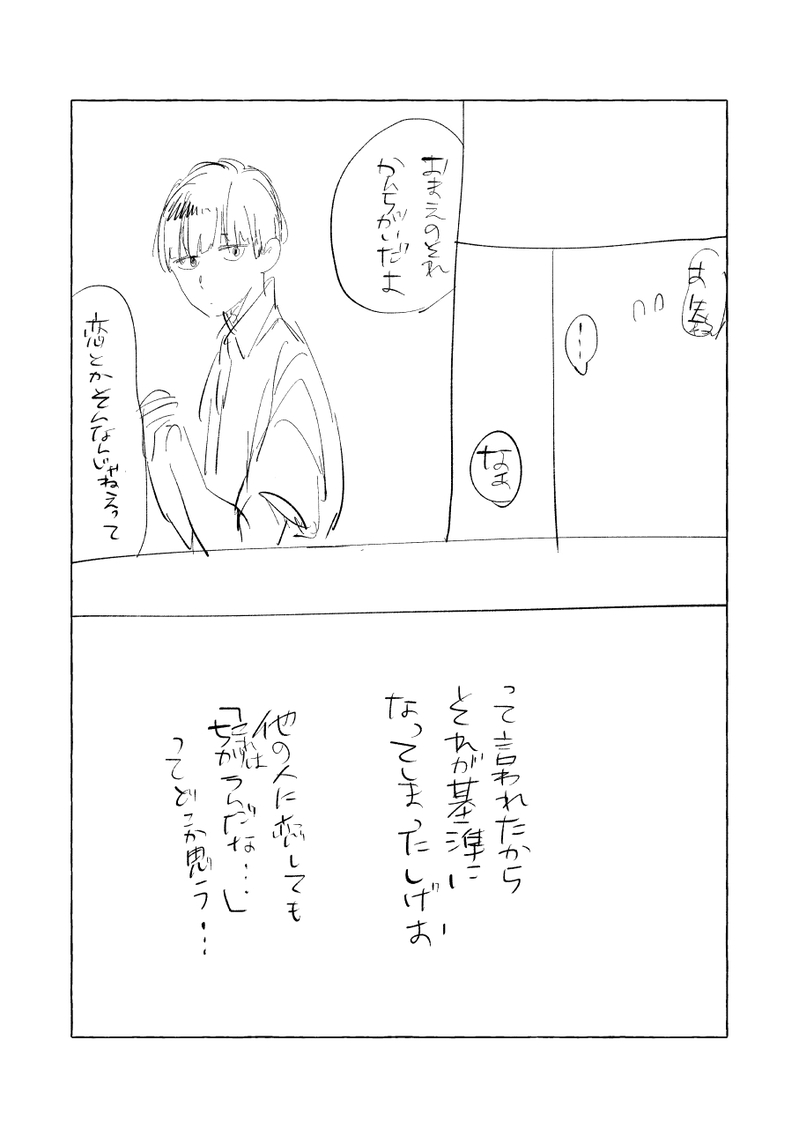 ……
なあ
おまえのそれ
かんちがいだよ
恋とかそんなんじゃねえって
って言われたから
それが基準に
なってしまったしげお
他の人に恋しても
「これは
ちがうんだな…」
ってどこか思う…